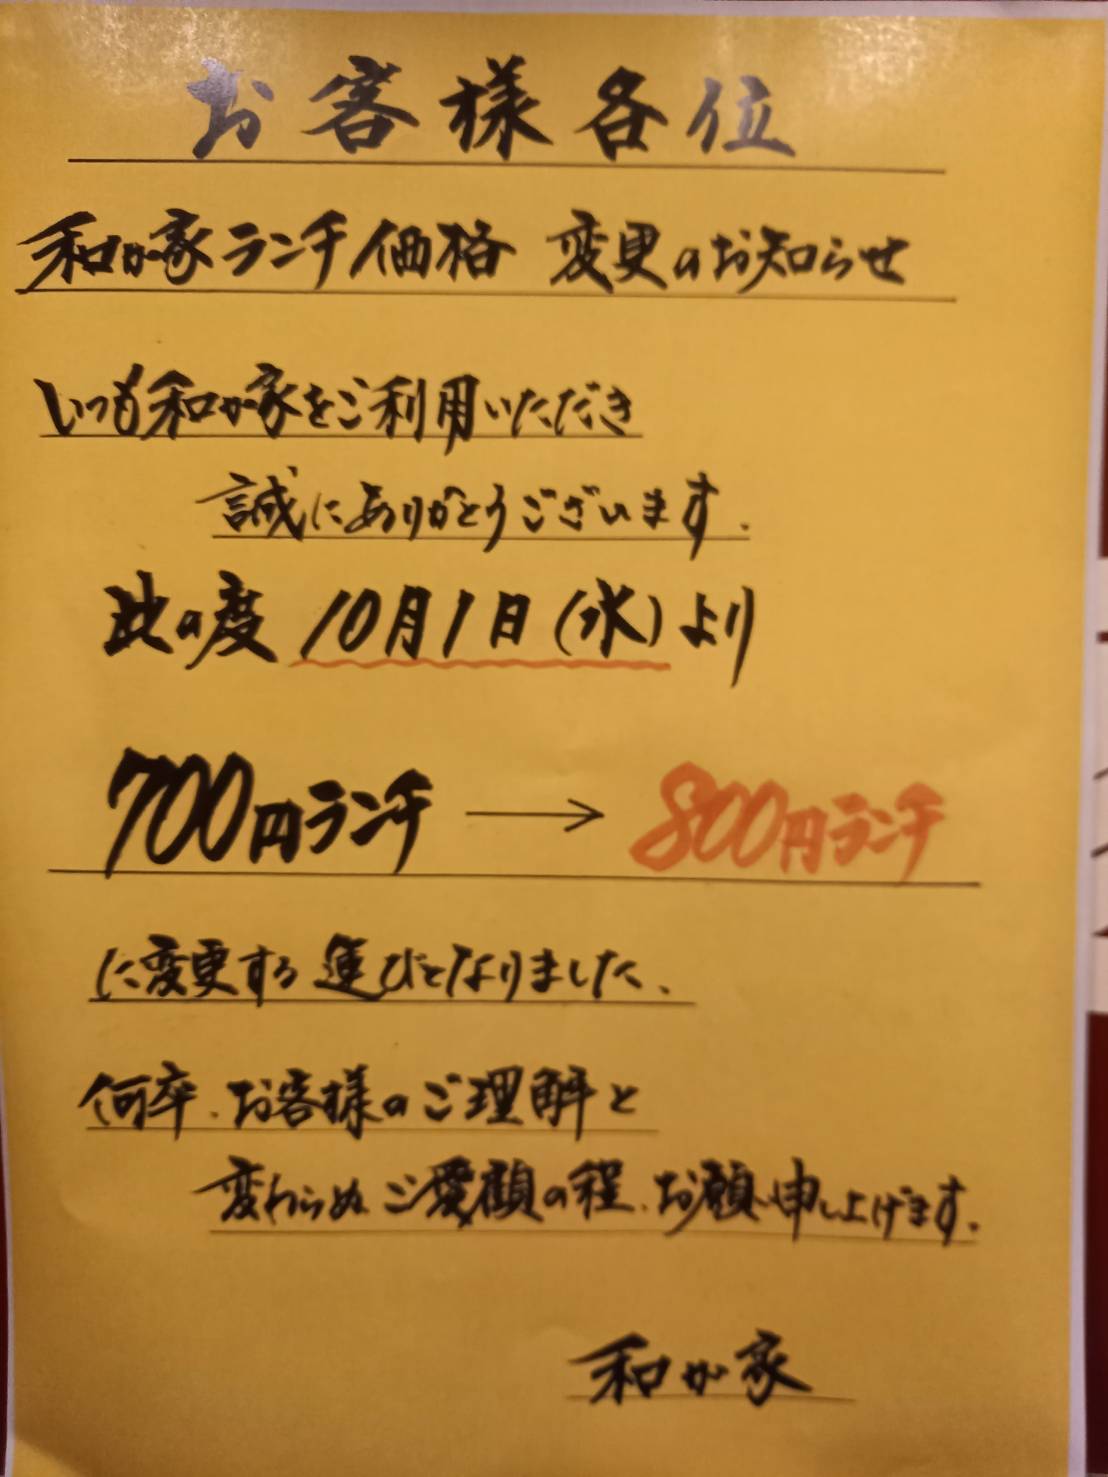 お客様各位
和が家ランチ価格 変更のお知らせ
いつも和が家をご利用いただき
誠にありがとうございます.
此の度 10月1日(水)より
700円ランチ → 800円ランチ
に変更する運びとなりました、
何卒、お客様のご理解と
変わらぬご愛顧の程、お願い申し上げます.
和が家